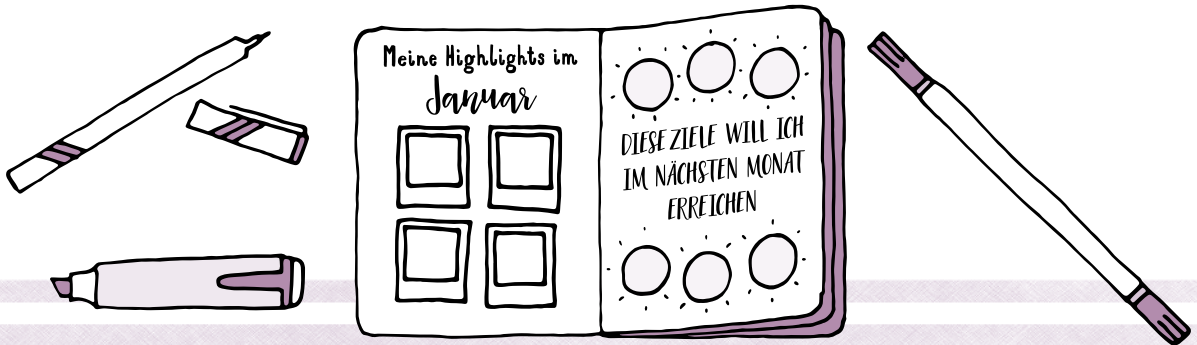 Meine Highlights im
Januar
DIESE ZIELE WILL ICH
IM NÄCHSTEN MONAT
ERREICHEN